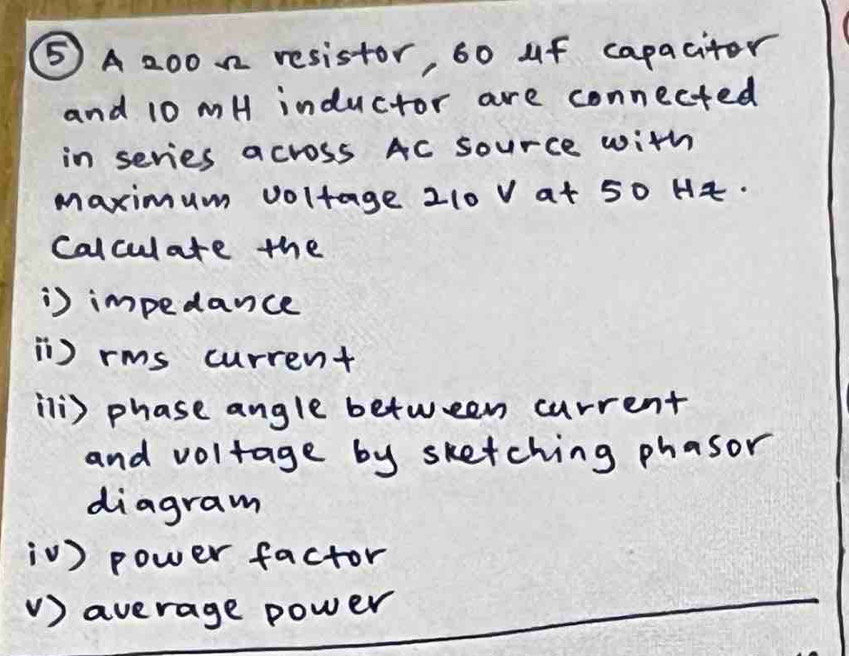 ⑤ A 200 Ω resistor, 60 μF capacitor
and 10 mH inductor are connected
in series across AC source with
maximum voltage 210 V at 50 Hz.
Calculate the
i) impedance
ii) rms current
iii) phase angle between current
and voltage by sketching phasor
diagram
iv) power factor
v) average power